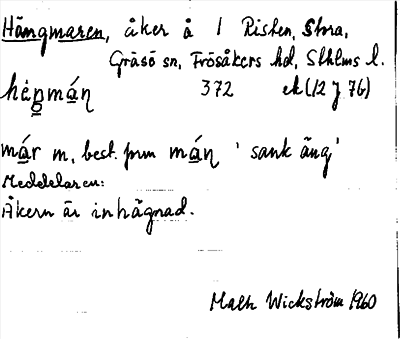 Hängmaren, åker å 1 Risten, Stora,
Gräsö sn, Frösåkers hd, Sthlms l.
hèŋmán
372 ek (12 J 76)
már m, best. form mán 'sank äng'
Meddelaren:
Åkern är inhägnad.
Math Wickström 1960